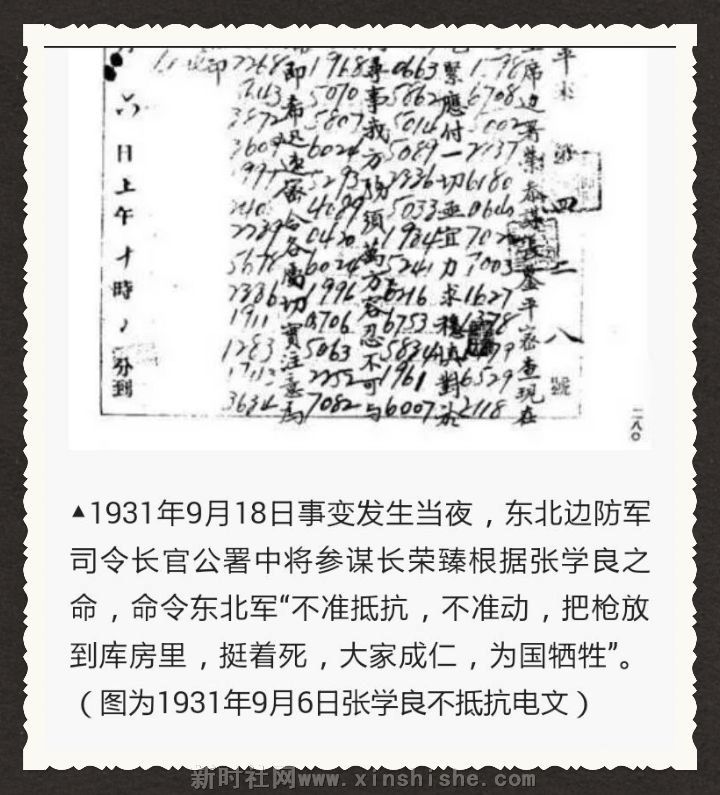 平來 四二八號
席边署荣参谋長鉴平密查現在
6708 2137 6180 1627 1378 6529 2118
緊應付一切亟宜力求穩慎對於
0663 5862 5014 5089 2336 5033 1984 5241 6216 6753 5834 1961 6007
尋事我方務須萬方容忍不可与
1968 5070 5807 6024 5293 4089 0420 6024 1996 0706 5063 2252 7082
即希迅速密令各屬切實注意為
2268 3872 3609 2239 5678 2336 1911 1283 1713 3634
六日上午十時 分到
二八〇
▲1931年9月18日事变发生当夜，东北边防军
司令长官公署中将参谋长荣臻根据张学良之
命，命令东北军“不准抵抗，不准动，把枪放
到库房里，挺着死，大家成仁，为国牺牲”。
（图为1931年9月6日张学良不抵抗电文）
新时社网www.xinshishe.com